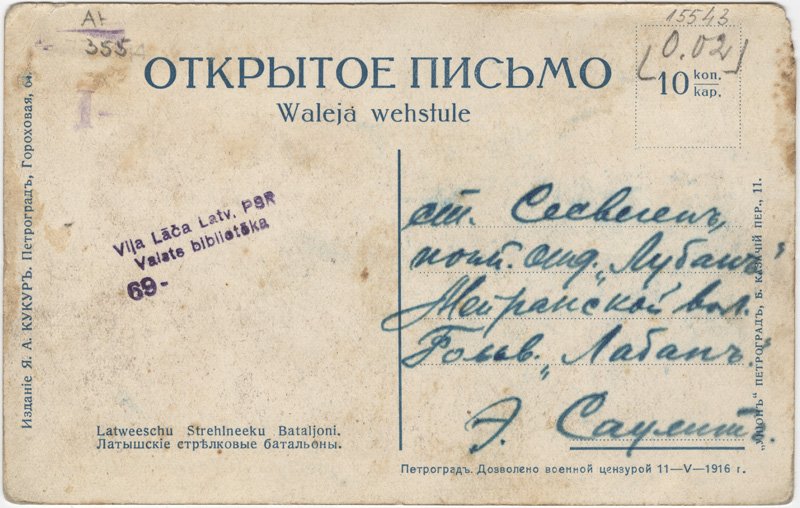 15543
A+
355
[0.02]
10 коп.
кар.
ОТКРЫТОЕ ПИСЬМО
Waleja wehstule
I-
Viļa Lāča Latv. PSR
Valsts bibliotēka
69-
ст. Сесвегенъ,
почт. отд. „Лубанъ"
Мейранской вол.
„Лабанъ."
Э. Саулитъ.
Latweeschu Strehlneeku Bataljoni.
Латышскіе стрѣлковые батальоны.
Петроградъ. Дозволено военной цензурой 11—V—1916 г.
Изданіе Я. А. КУКУРЪ. Петроградъ, Гороховая, 64.
„УНІОНЪ" ПЕТРОГРАДЪ, Б. КАЗАЧІЙ ПЕР., 11.